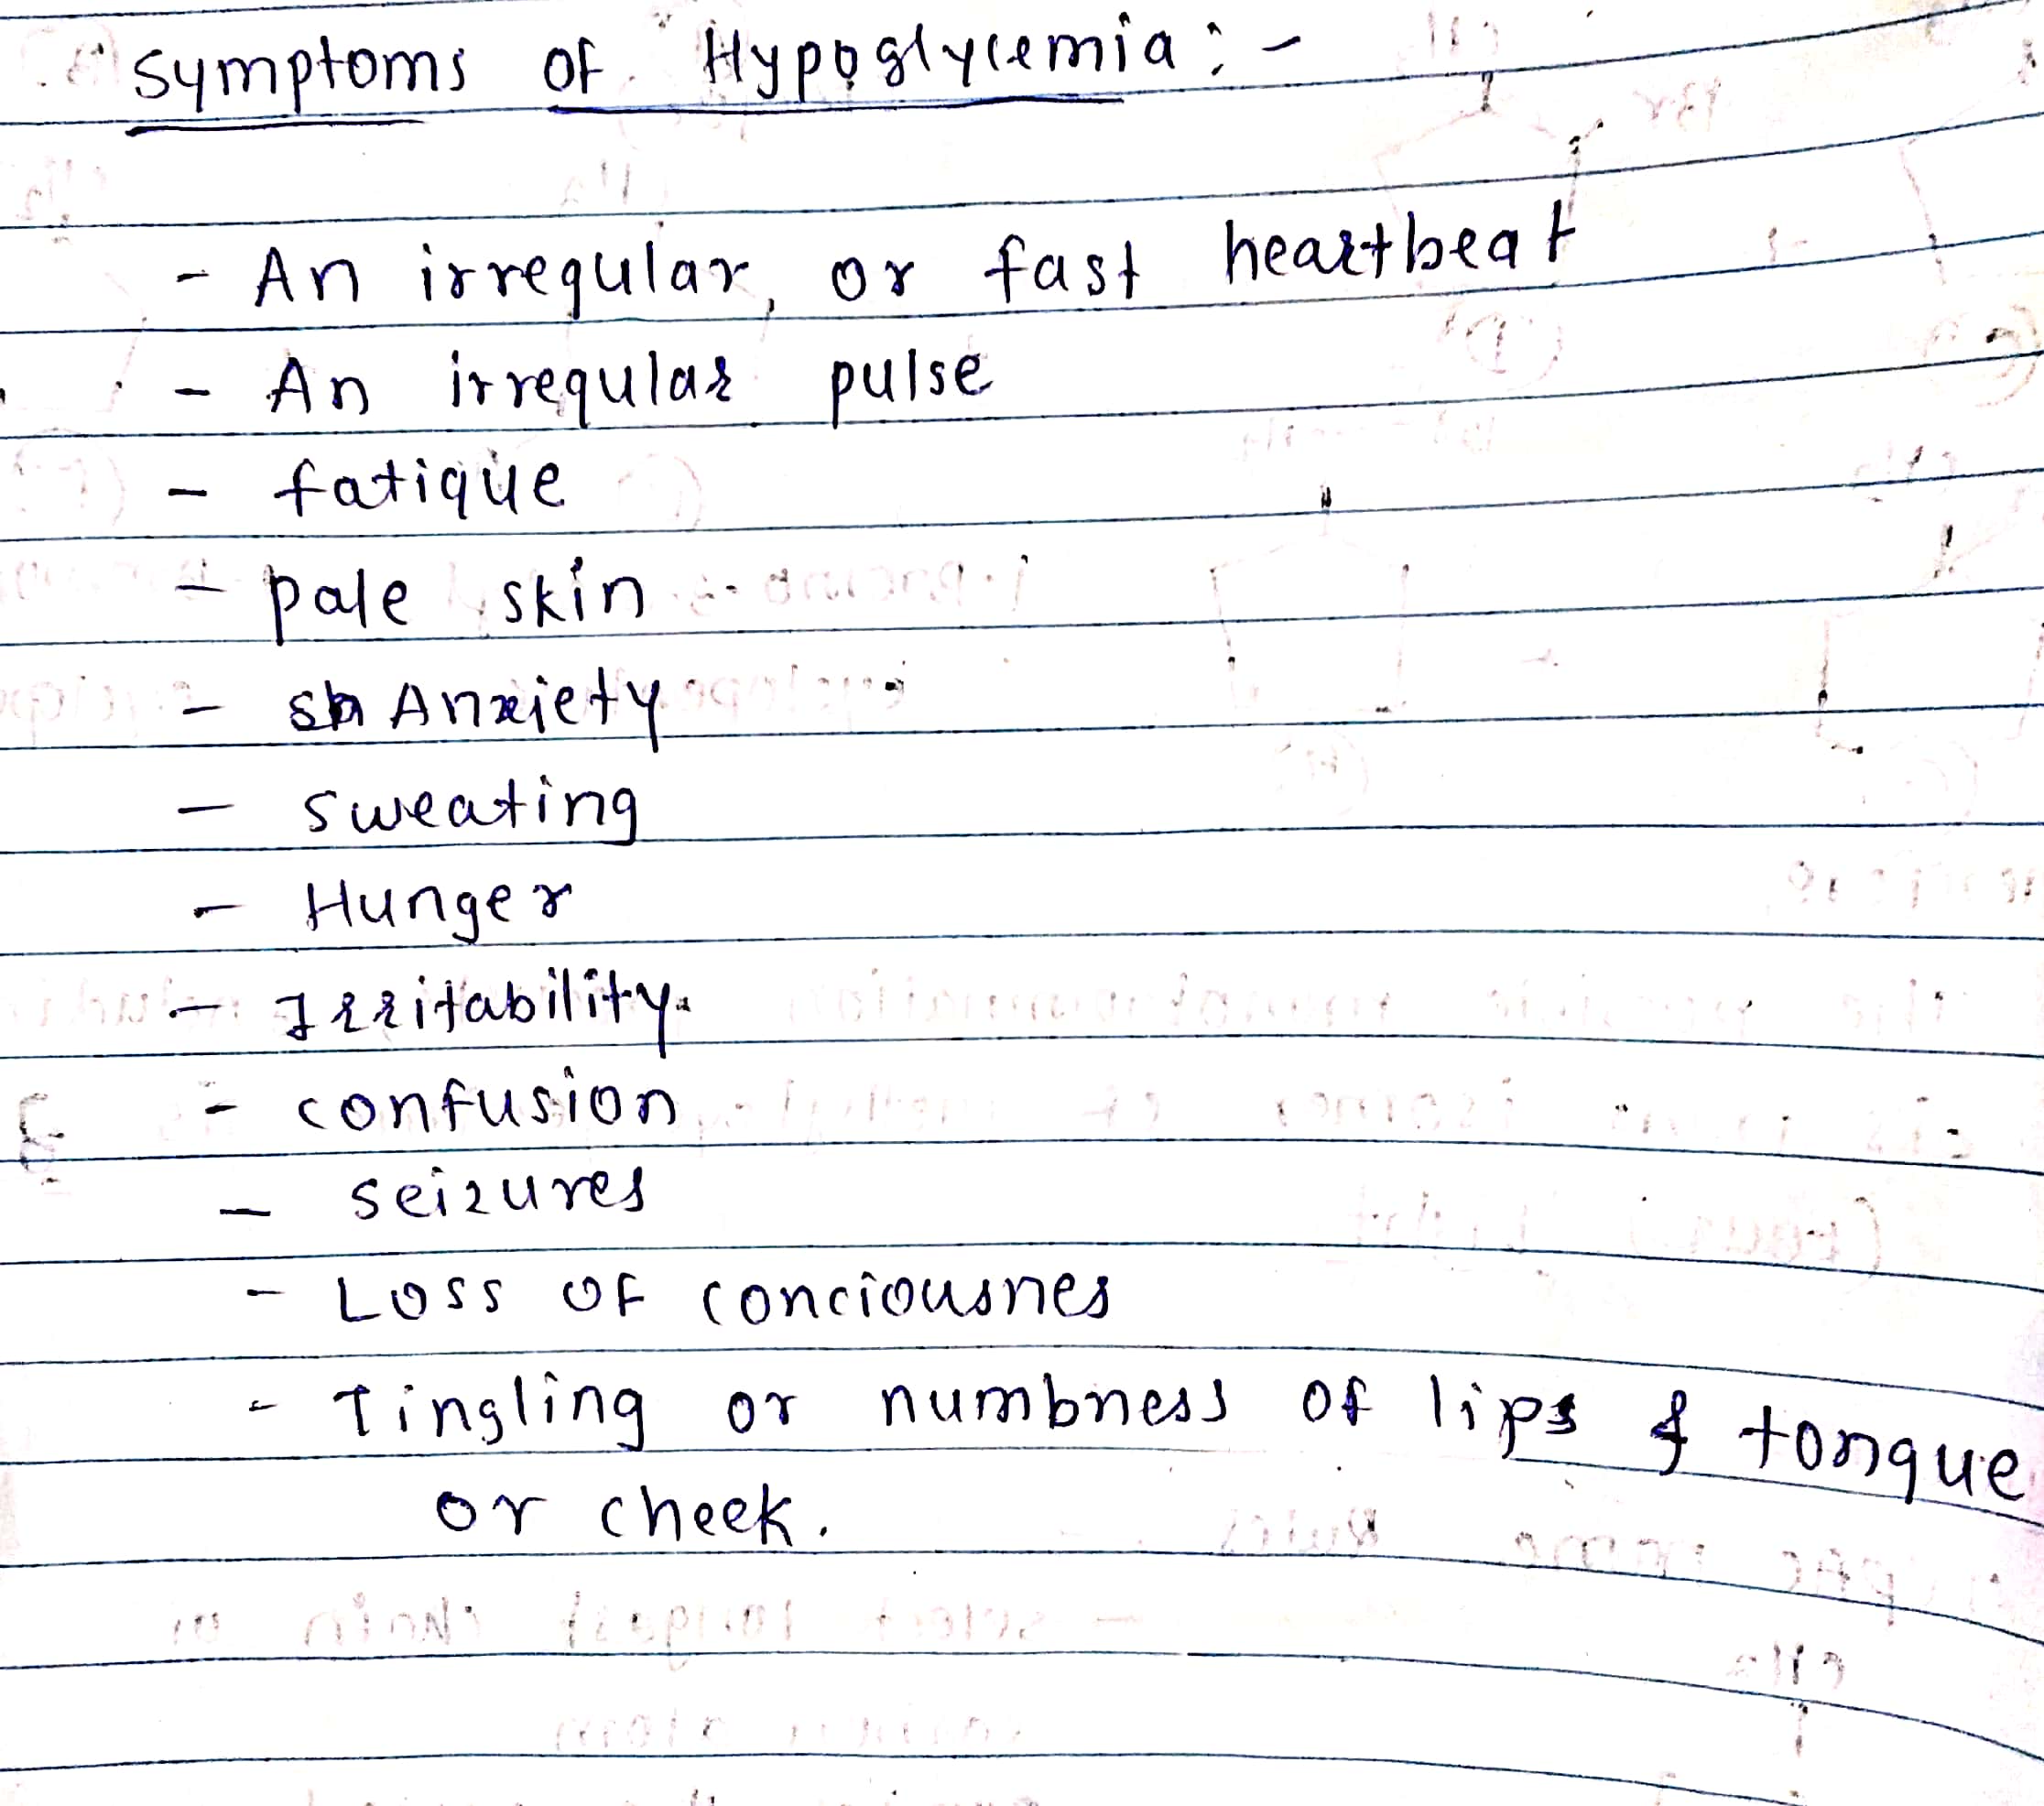 Symptoms of Hypoglycemia :-
- An irregular, or fast heartbeat
- An irregular pulse
- fatique
- pale skin
- Anxiety
- sweating
- Hunger
- Irritability.
- confusion
- seizures
- Loss of conciousnes
- Tingling or numbness of lips & tongue
or cheek.